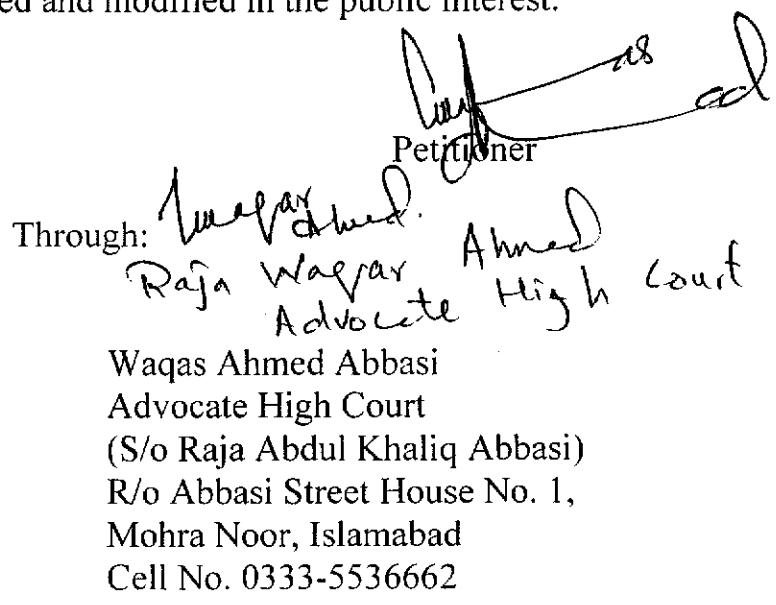 ed and modified in the public interest.
Petitioner
Through: Waqar Ahmed.
Raja Waqar Ahmed
Advocate High Court
Waqas Ahmed Abbasi
Advocate High Court
(S/o Raja Abdul Khaliq Abbasi)
R/o Abbasi Street House No. 1,
Mohra Noor, Islamabad
Cell No. 0333-5536662